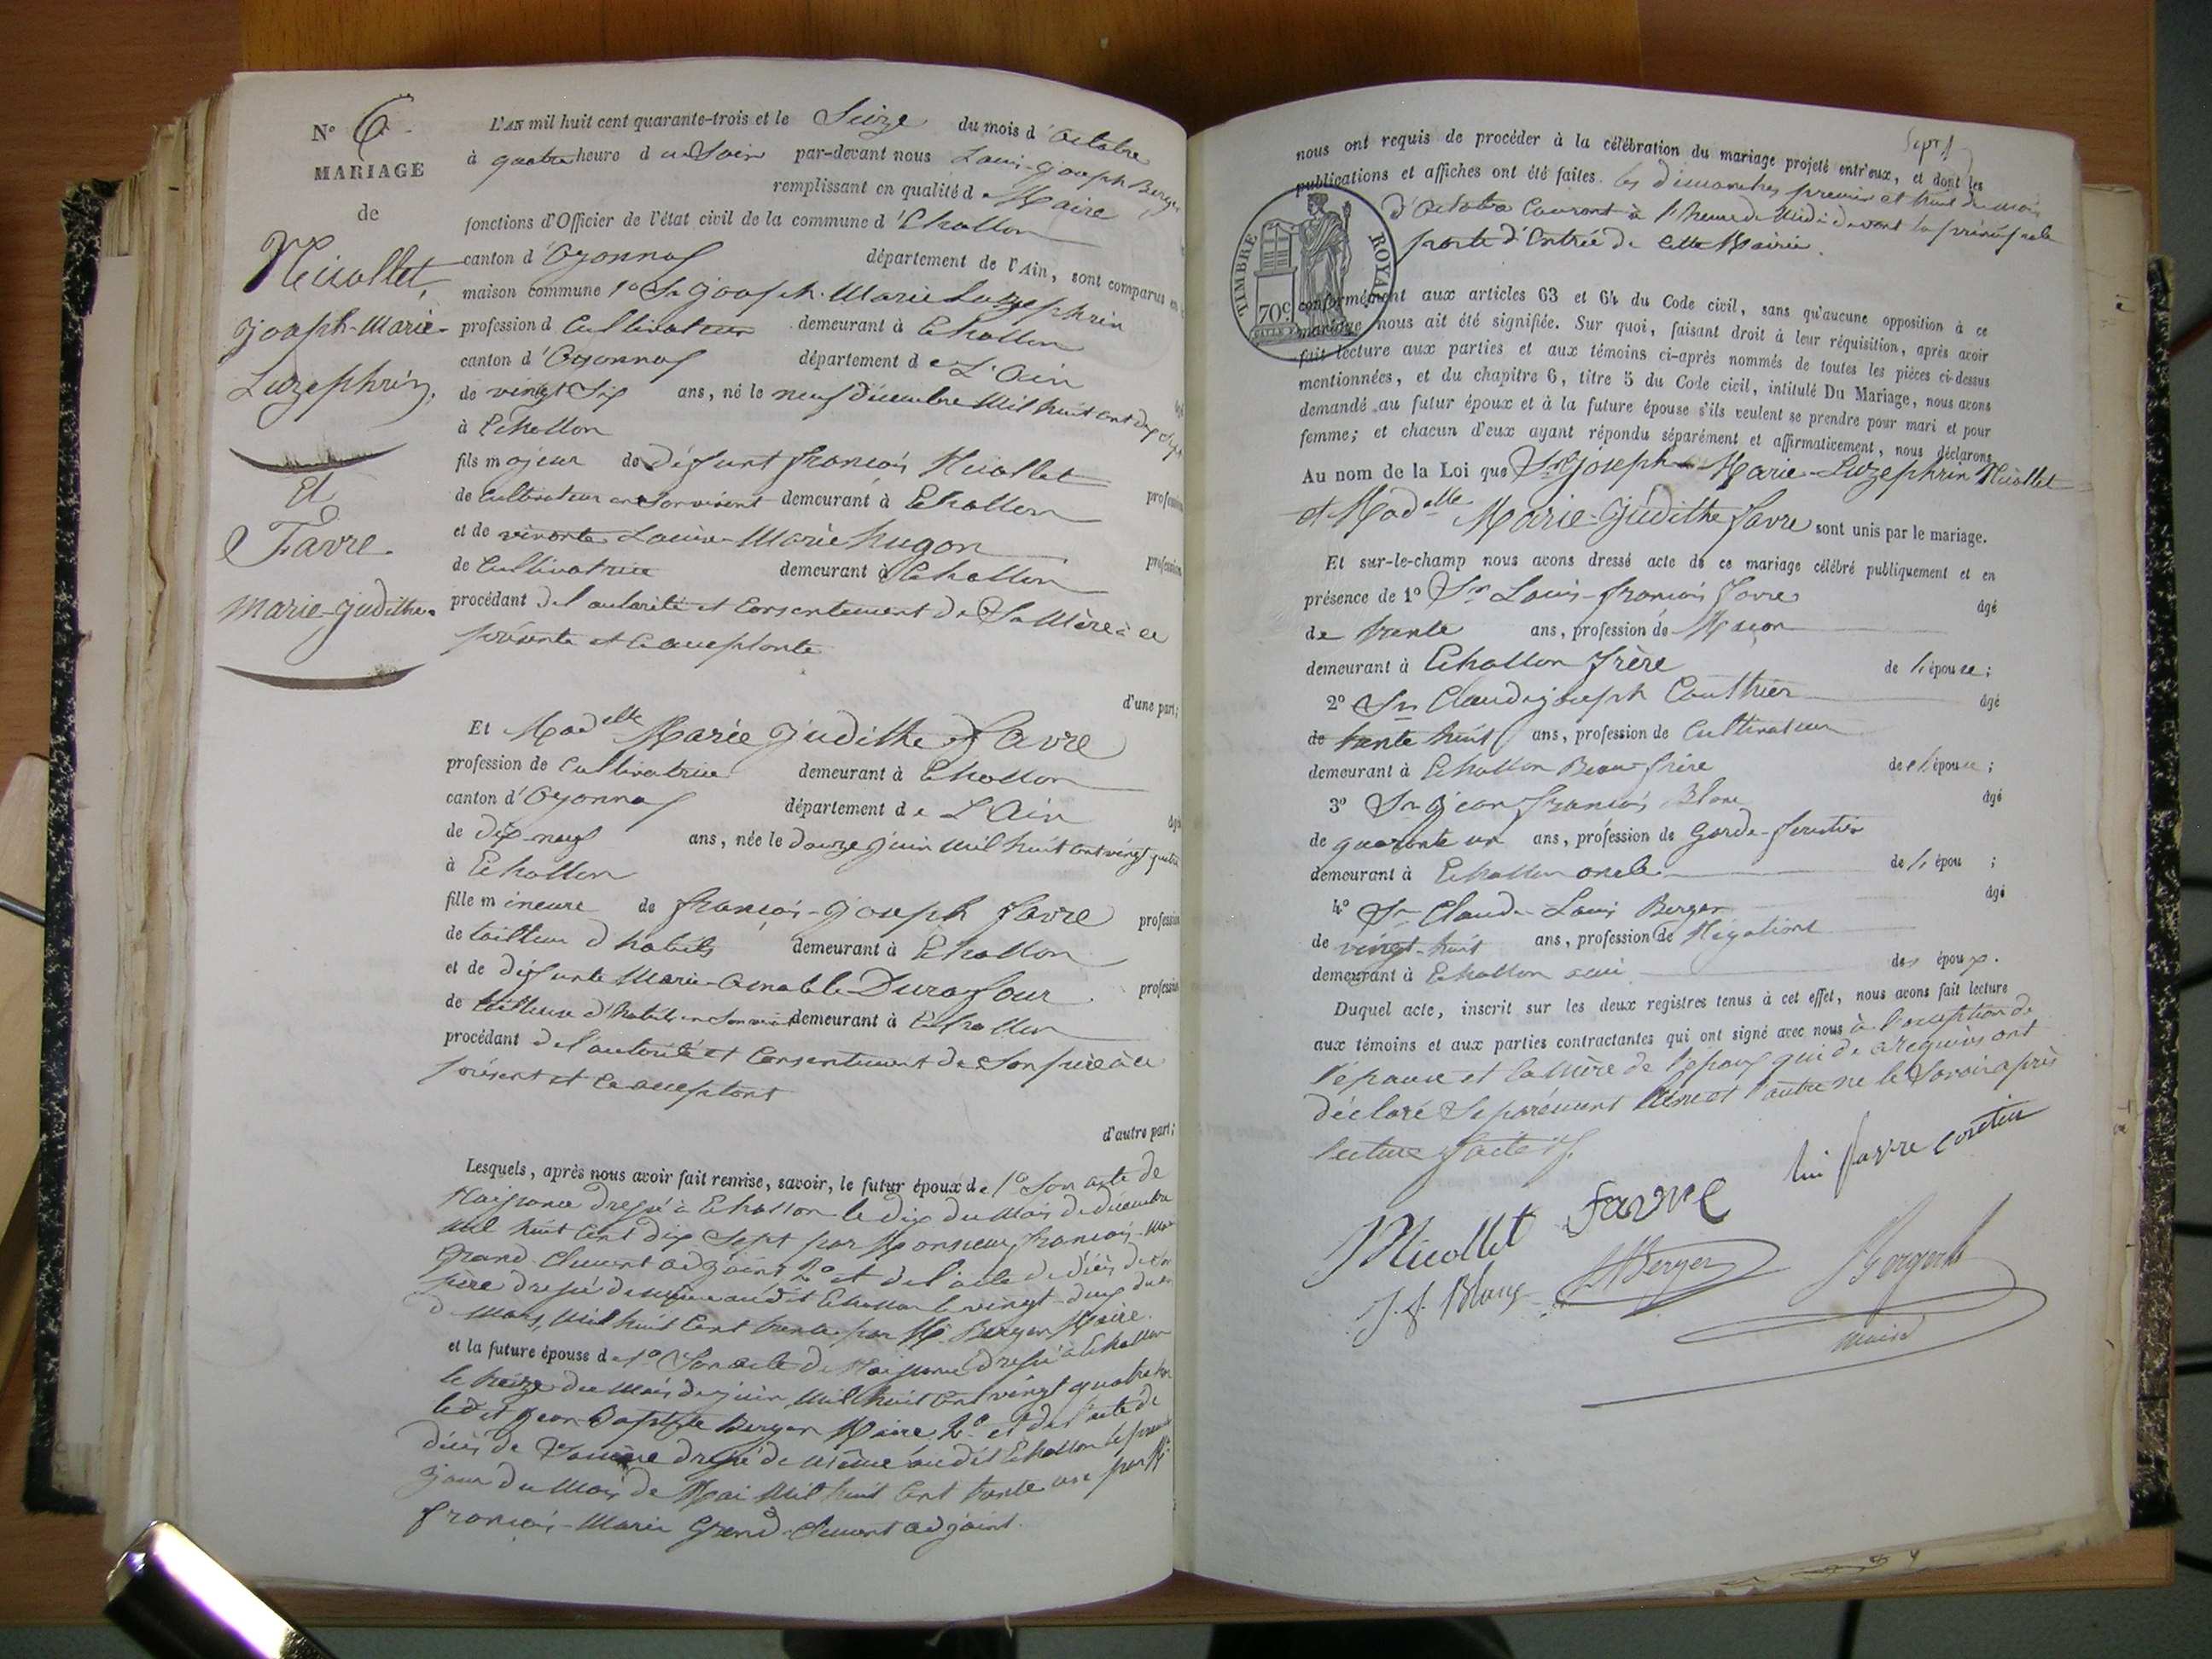 N° 6
MARIAGE
de
Nicollet,
Joseph-Marie-
Luzephrin,
Et
Favre
Marie-Judithe
L'AN mil huit cent quarante-trois et le Seize du mois d'Octobre
à quatre heure du Soir par-devant nous Louis-Joseph Berger
remplissant en qualité de Maire
fonctions d'Officier de l'état civil de la commune d'Echallon
canton d'Oyonnax département de l'Ain, sont comparus en
maison commune 1° Sr Joseph-Marie Luzephrin
profession d Cultivateur demeurant à Echallon
canton d'Oyonnax département de L'Ain
de vingt Six ans, né le neuf Décembre Mil huit cent dix Sept
à Echallon
fils majeur de Défunt françois Nicollet
de Cultivateur en Son vivant demeurant à Echallon profession
et de vivante Louise-Marie hugon
de Cultivatrice demeurant à Echallon profession
procédant de l'autorité et Consentement de Sa Mère à ce
présente et l'acceptante
d'une part;
Et Madelle Marie Judithe Favre
profession de Cultivatrice demeurant à Echallon
canton d'Oyonnax département de L'Ain
de dix-neuf ans, née le Douze Juin Mil huit cent vingt quatre
à Echallon
fille mineure de françois-Joseph favre profession
de tailleur d'habits demeurant à Echallon
et de défunte Marie-Aimable Durafour profession
de tailleuse d'habits en Son vivant demeurant à Echallon
procédant de l'autorité et Consentement de Son père à ce
présent et l'acceptant
d'autre part;
Lesquels, après nous avoir fait remise, savoir, le futur époux de 1° Son acte de
Naissance dressé à Echallon le dix du Mois de décembre
Mil huit Cent dix Sept par Monsieur françois-Marie
Grand-Clément adjoint 2° et de l'acte de décès de Son
père dressé de même audit Echallon le vingt-deux du mois
de Mars, Mil huit Cent trente par Mr Berger Maire.
et la future épouse de 1° Son acte de Naissance dressé à Echallon
le treize du Mois de juin Mil huit Cent vingt quatre par
ledit Jean Baptiste Berger Maire 2° et de l'acte de
décès de Sa mère dressé de même audit Echallon le premier
jour du Mois de Mai Mil huit Cent trente un par Mr
françois-Marie Grand-Clément adjoint.
Sept
nous ont requis de procéder à la célébration du mariage projeté entr'eux, et dont les
publications et affiches ont été faites les dimanches premier et huit du mois
d'Octobre Courant à l'heure de Midi devant la principale
porte d'Entrée de Cette Mairie.
TIMBRE ROYAL
70c
conformément aux articles 63 et 64 du Code civil, sans qu'aucune opposition à ce
mariage nous ait été signifiée. Sur quoi, faisant droit à leur réquisition, après avoir
fait lecture aux parties et aux témoins ci-après nommés de toutes les pièces ci-dessus
mentionnées, et du chapitre 6, titre 5 du Code civil, intitulé Du Mariage, nous avons
demandé au futur époux et à la future épouse s'ils veulent se prendre pour mari et pour
femme; et chacun d'eux ayant répondu séparément et affirmativement, nous déclarons
Au nom de la Loi que Sr Joseph-Marie-Luzephrin Nicollet
et Madelle Marie-Judithe favre sont unis par le mariage.
Et sur-le-champ nous avons dressé acte de ce mariage célébré publiquement et en
présence de 1° Sr Louis-françois favre âgé
de trente ans, profession de Maçon
demeurant à Echallon frère de l'épouse;
2° Sr Claude joseph Gauthier âgé
de trente huit ans, profession de Cultivateur
demeurant à Echallon Beau-frère de l'épouse;
3° Sr Jean françois Blanc âgé
de quarante un ans, profession de Garde-forestier
demeurant à Echallon oncle de l'épou ;
4° Sr Claude-Louis Berger âgé
de vingt-huit ans, profession de Négotiant
demeurant à Echallon ami des époux.
Duquel acte, inscrit sur les deux registres tenus à cet effet, nous avons fait lecture
aux témoins et aux parties contractantes qui ont signé avec nous à l'exception de
l'épouse et la Mère de l'époux qui de ce requises ont
déclaré Séparément l'une et l'autre ne le Savoir après
lecture faite
Nicollet favre lui favre
J. f. Blanc Berger Berger
Maire